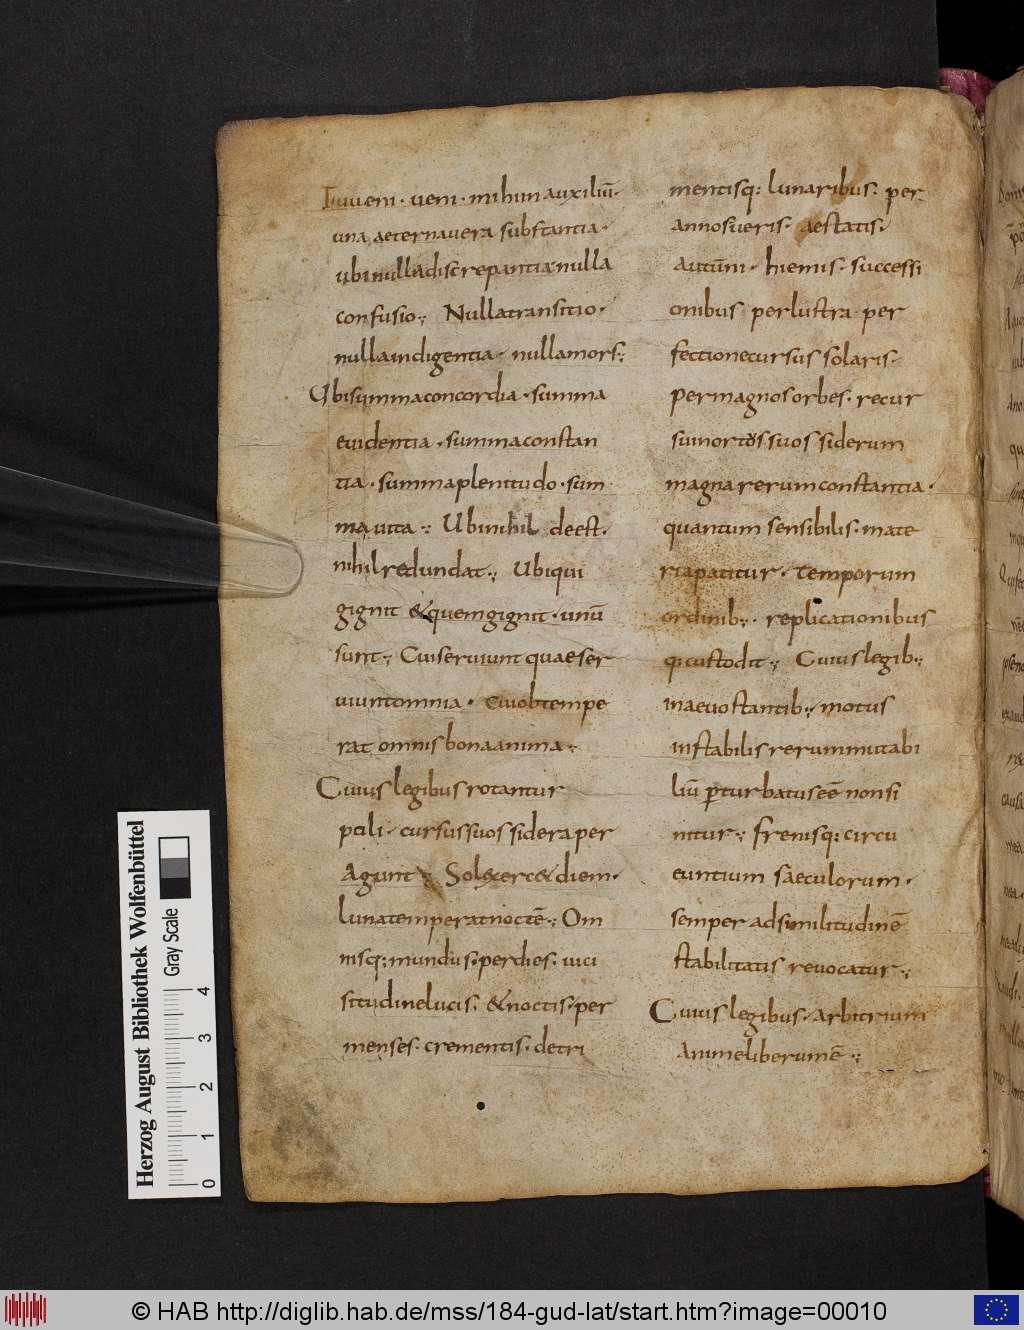 Tu veni · veni · mihi in auxiliū·
una aeterna vera substantia ·
ubi nulla discrepantia nulla
confusio·, Nulla transitio ·
nulla indigentia · nulla mors·,
Ubi summa concordia · summa
evidentia · summa constan
tia · summa plenitudo · sum
ma vita ·, Ubi nihil deest·
nihil redundat·, Ubi qui
gignit &quem gignit · unū
sunt·, Cui serviunt quae ser
viunt omnia · cui obtempe
rat omnis bona anima·,
Cuius legibus rotantur
poli · cursus suos sidera per
Agunt·, Sol exerc& diem·
luna temperat noctē·, Om
nisq: mundus· per dies· vici
situdine lucis· &noctis· per
menses· crementis· detri
mentisq: lunaribus· per
annos veris· aestatis·
autūni· hiemis· successi
onibus perlustra per
fectione cursus solaris·
per magnos orbes· recur
su in ortos suos siderum
magna rerum constantia·
quantum sensibilis· mate
ria patitur· temporum
ordinib·, · replicationibus
q: custodit·, Cuius legib·,
in aevo stantib·, motus
instabilis rerum mutabi
liū perturbatus eē non si
nitur·, frenisq: circu
euntium saeculorum·
semper ad similitudinē
stabilitatis revocatur·,
Cuius legibus· arbitrium
Anime liberum ē·,
Herzog August Bibliothek Wolfenbüttel
Gray Scale
0 1 2 3 4
© HAB http://diglib.hab.de/mss/184-gud-lat/start.htm?image=00010